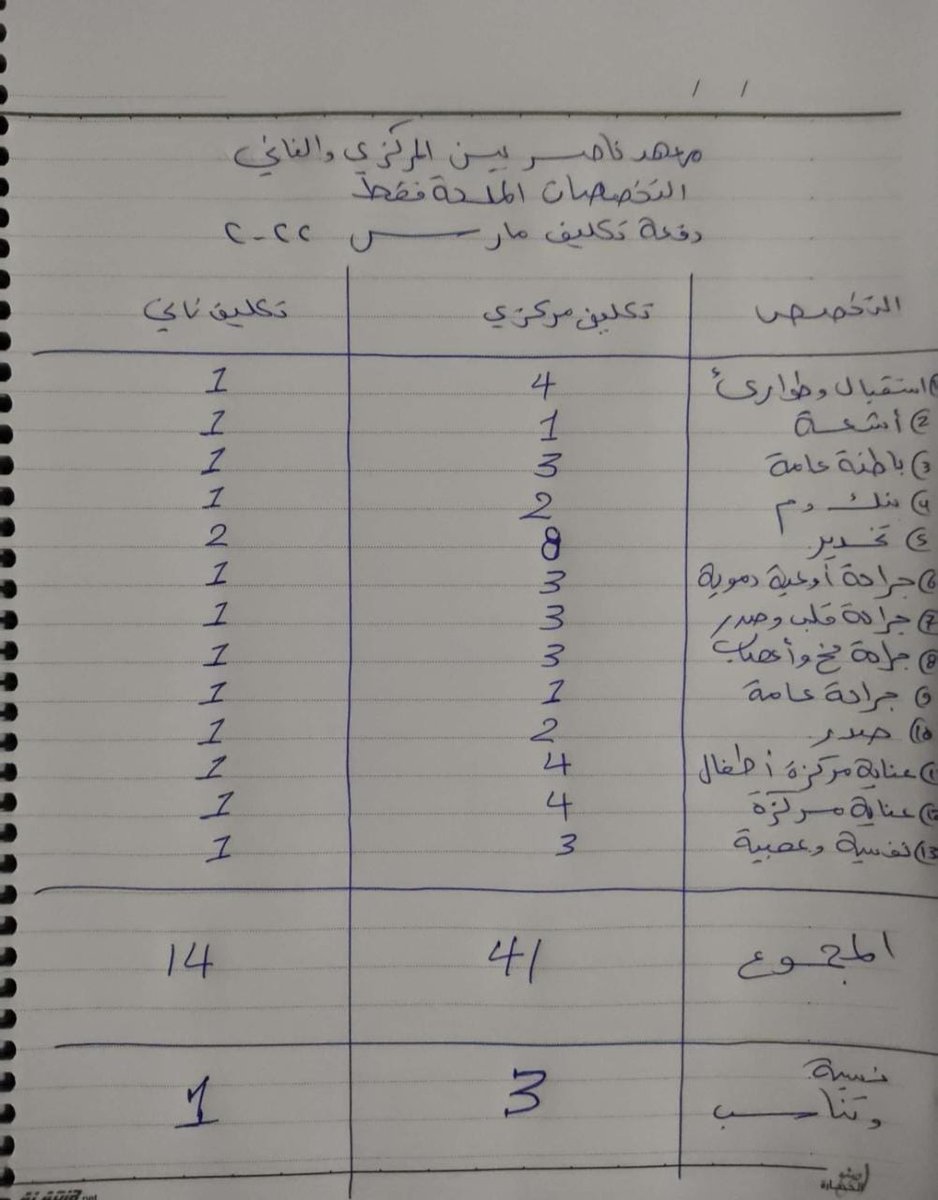 / /
معهد ناصر بين المركزي والثاني
التخصصات الملحة فقط
دفعة تكليف مارس ٢٠٢٢
التخصص تكليف مركزي تكليف ثاني
① استقبال وطوارئ 4 1
② أشعة 1 1
③ باطنة عامة 3 1
④ بنك دم 2 1
⑤ تخدير 8 2
⑥ جراحة أوعية دموية 3 1
⑦ جراحة قلب وصدر 3 1
⑧ جراحة مخ وأعصاب 3 1
⑨ جراحة عامة 1 1
⑩ صدر 2 1
⑪ عناية مركزة أطفال 4 1
⑫ عناية مركزة 4 1
⑬ نفسية وعصبية 3 1
المجموع 41 14
نسبة وتناسب 3 1